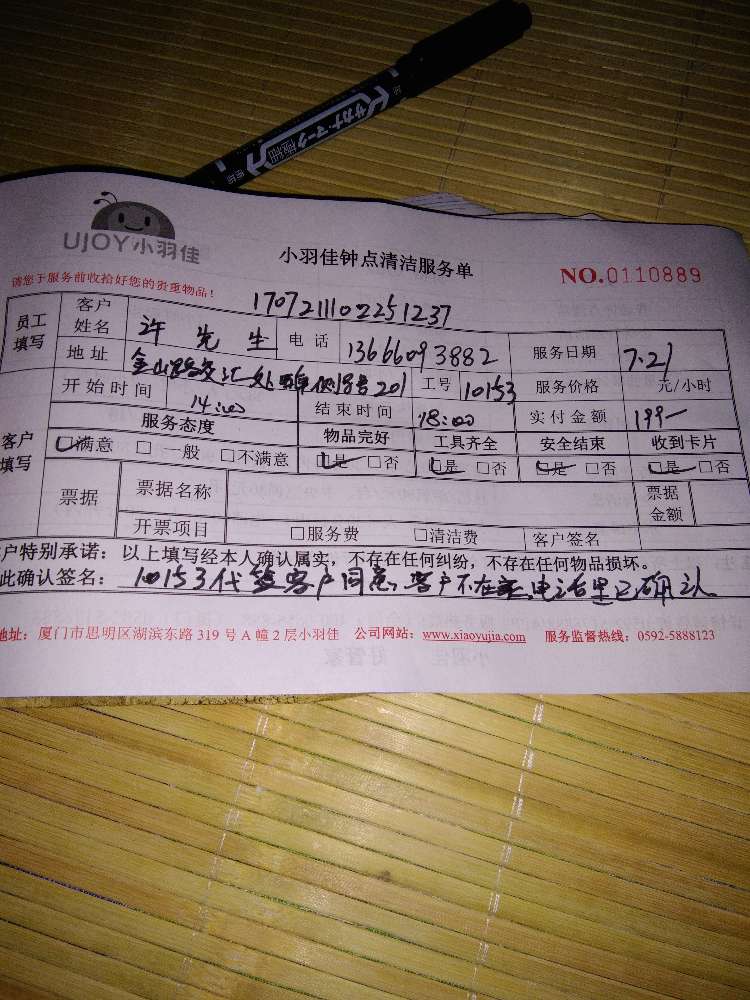 サカナ・マーク 極細
UJOY小羽佳
小羽佳钟点清洁服务单
NO.0110889
请您于服务前收拾好您的贵重物品！
1707211102251237
员工填写 客户姓名 许先生 电话 13666093882 服务日期 7.21
地址 金山路交汇处 201 工号 10153 服务价格 元/小时
客户填写 开始时间 14:00 结束时间 18:00 实付金额 199-
服务态度 物品完好 工具齐全 安全结束 收到卡片
□满意 □一般 □不满意 □是 □否 □是 □否 □是 □否 □是 □否
票据 票据名称 票据金额
开票项目 □服务费 □清洁费 客户签名
户特别承诺：以上填写经本人确认属实，不存在任何纠纷，不存在任何物品损坏。
此确认签名：10153代签客户同意，客户不在 电话里已确认
地址：厦门市思明区湖滨东路 319 号 A 幢 2 层小羽佳 公司网站：www.xiaoyujia.com 服务监督热线：0592-5888123